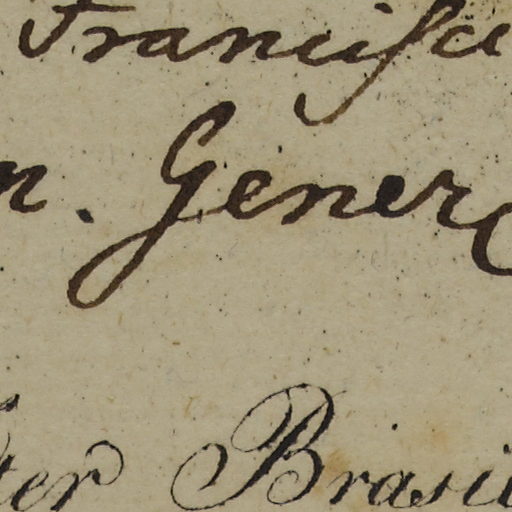 Francisci
n. Gener
ter Brasil